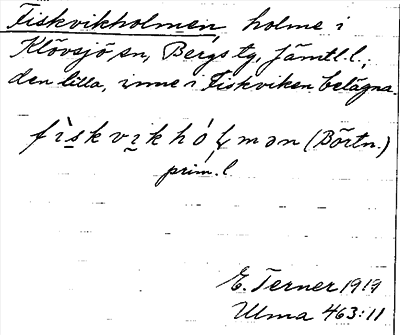 Fiskvikholmen, holme i
Klövsjö sn, Bergs tg, Jämtl. l.;
den lilla, inne i Fiskviken belägna.
fìskvikhólmən (Börtn.)
prim. l.
E. Terner 1919
Ulma 463:11